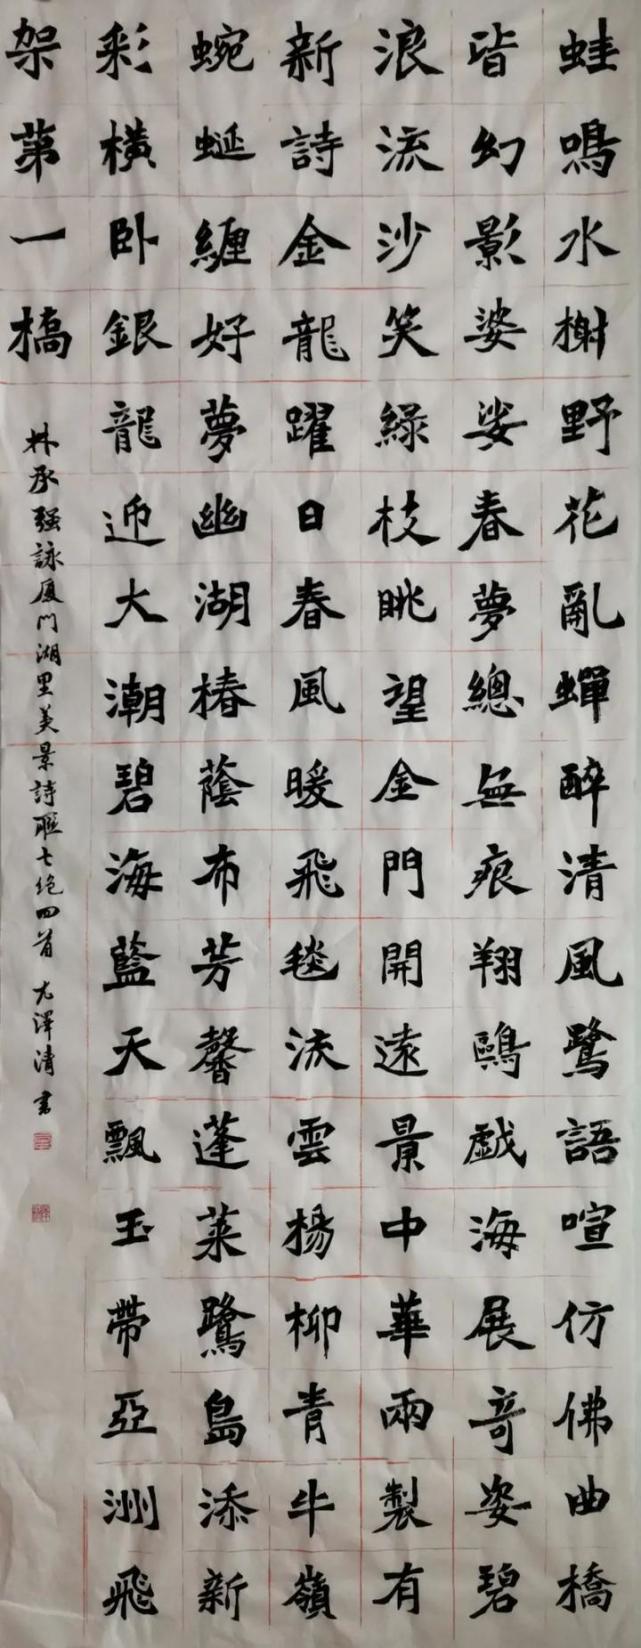 蛙鳴水榭野花亂蟬醉清風鷺語喧仿佛曲橋
皆幻影婆娑春夢總無痕翔鷗戲海展奇姿碧
浪流沙笑綠枝眺望金門開遠景中華兩製有
新詩金龍躍日春風暖飛毯流雲楊柳青牛嶺
蜿蜒纏好夢幽湖椿蔭布芳馨蓬萊鷺島添新
彩橫卧銀龍迎大潮碧海藍天飄玉帶亞洲飛
架第一橋
林承强詠厦門湖里美景詩聯七絶四首 尤澤清書